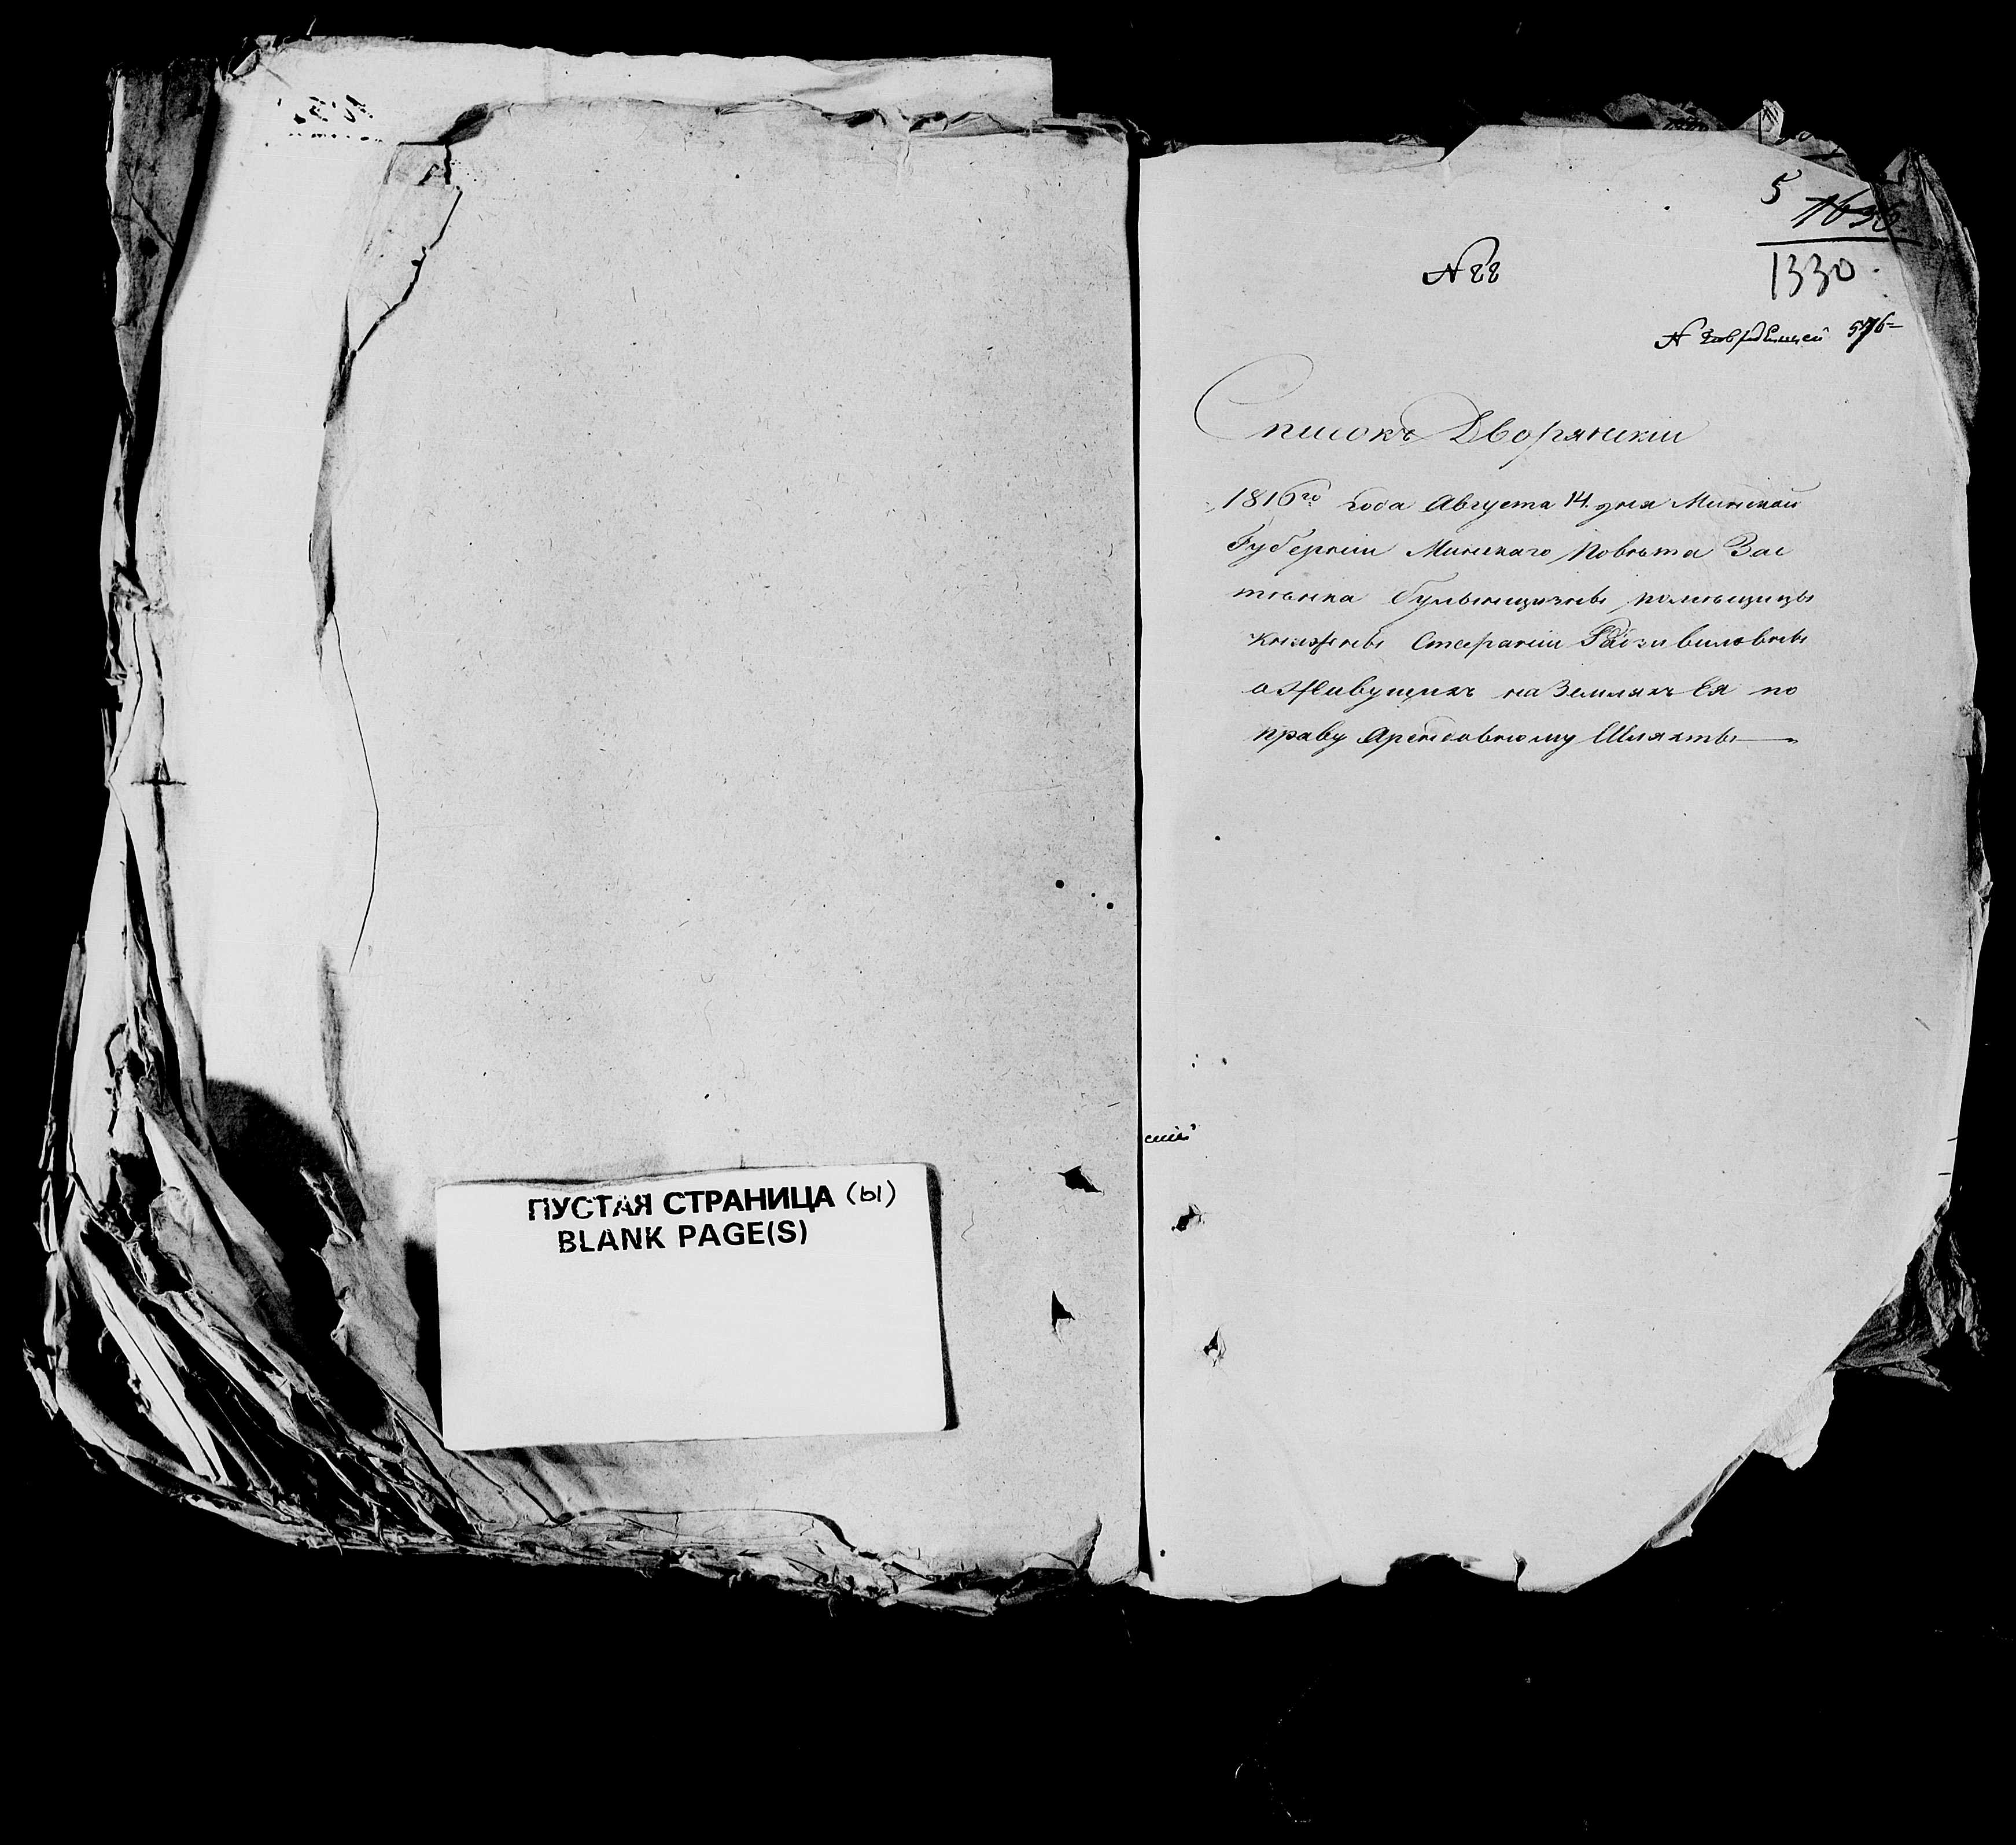 ПУСТАЯ СТРАНИЦА (ы)
BLANK PAGE(S)
5
1330
№ 88
576
Списокъ Дворянскiи
1816го Года Августа 14. дня Минской
Губернiи Минскаго Повѣта Зас
тѣнка помѣщицы
Княжны Стефанiи Радзивиловны
о Живущихъ на Земляхъ Ея по
праву Арендовному Шляхты